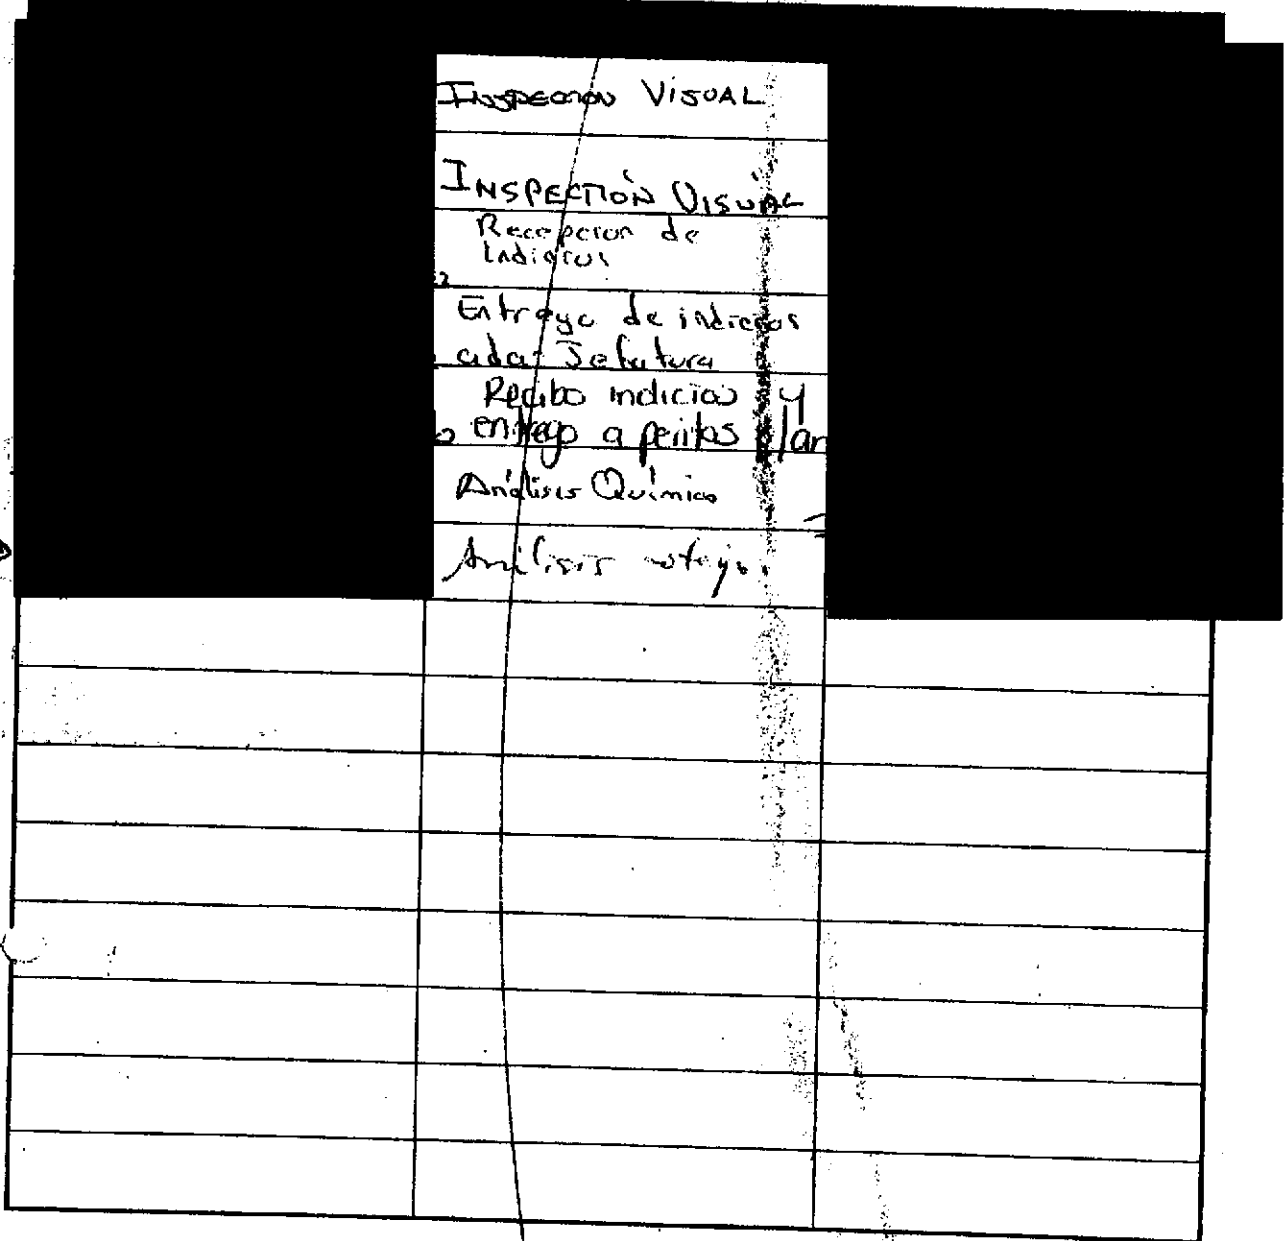 INSPECCION VISUAL
INSPECTIÓN VISUAL
Recepcion de
Indicios
Entrego de indicios
a da Jefatura
Recibo indicios y
entrego a peritos
Análisis Químico
Análisis